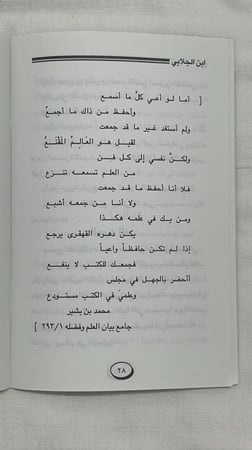 ابن الجلابي
[ أما لو أعي كلُّ ما أسمع
وأحفظ من ذاك ما أجمعُ
ولم أستفد غير ما قد جمعت
لقيل هو العالِمُ المُقْنَعُ
ولكنَّ نفسي إلى كل فن
من العلم تسمعه تنزع
فلا أنا أحفظ ما قد جمعت
ولا أنا من جمعه أشبع
ومن يك في علمه هكذا
يكن دهره القهقرى يرجع
إذا لم تكن حافظاً واعياً
فجمعك للكتب لا ينفع
أأحضر بالجهل في مجلس
وعلمي في الكتب مستودع
محمد بن بشير
جامع بيان العلم وفضله ٢٩٣/١ ]
٢٨